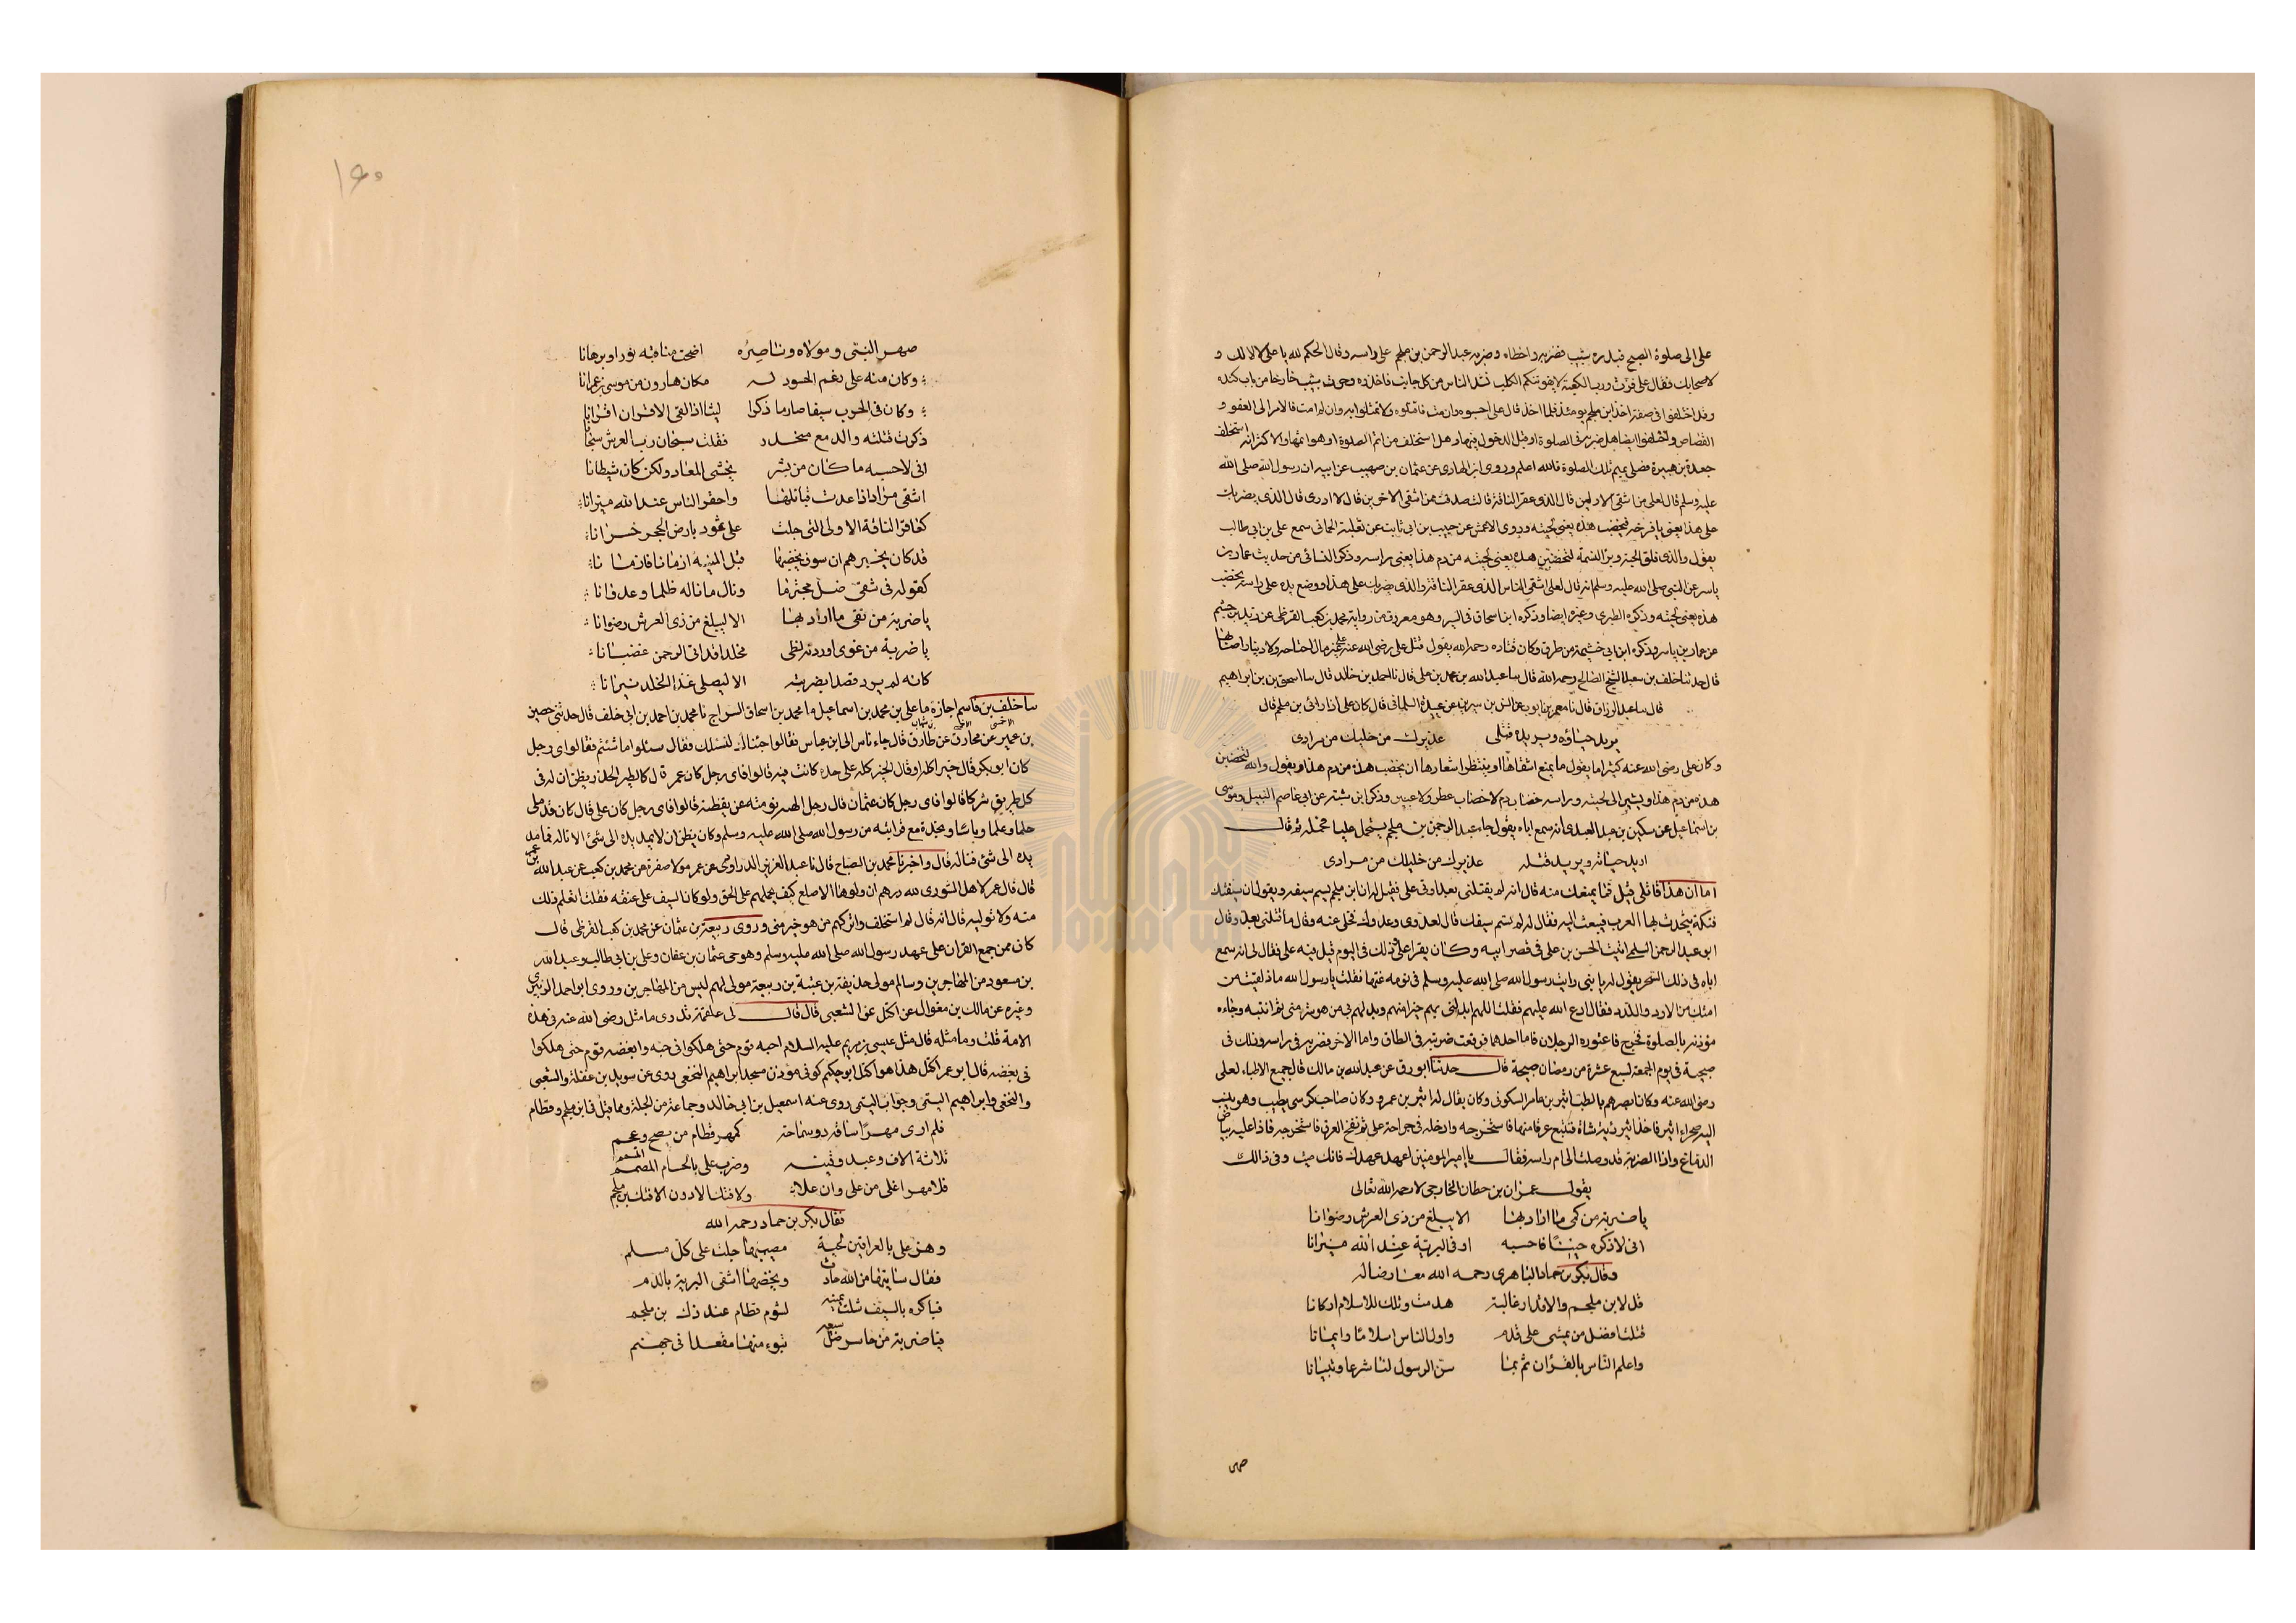 على الى صلوة الصبح فبدره شبيب فضربه واخطاه وضربه عبد الرحمن بن ملجم على راسه وقال الحكم لله يا على لا لك و
لاصحابك فقال على فزت ورب الكعبة لا يفوتنكم الكلب فشد الناس من كل جانب فاخذوه وهرب شبيب خارجا من باب كنده
وقد اختلفوا فى صفة اخذ ابن ملجم يومئذ فلما اخذ قال على احبسوه فان مت فاقتلوه ولا تمثلوا به وان لم امت فالامر الى فى العفو و
القصاص واختلفوا ايضا هل ضربه فى الصلوة او قبل الدخول فيها وهل استخلف من اتم الصلوة او هو اتمها والاكثر انه استخلف
جعدة بن هبيرة فصلى بهم تلك الصلوة فالله اعلم وروى ابن الهادى عن عثمان بن صهيب عن ابيه ان رسول الله صلى الله
عليه وسلم قال لعلى من اشقى الاولين قال الذى عقر الناقة قال صدقت فمن اشقى الاخرين قال لا ادرى قال الذى يضربك
على هذا يعنى يافوخه فيخضب هذه يعنى لحيته وروى الاعمش عن حبيب بن ابى ثابت عن ثعلبة الحمانى سمع على بن ابى طالب
يقول والذى فلق الحبة وبرا النسمة لتخضبن هذه يعنى لحيته من دم هذا يعنى راسه وذكر النسائى من حديث عمار بن
ياسر عن النبى صلى الله عليه وسلم انه قال لعلى اشقى الناس الذى عقر الناقة والذى يضربك على هذا ووضع يده على راسه يخضب
هذه يعنى لحيته وذكره الطبرى وغيره ايضا وذكره ابن اسحاق فى السير وهو معروف من رواية محمد بن كعب القرظى عن يزيد بن جشم
عن عمار بن ياسر وذكره ابن ابى خثيمة من طرق وكان قتاده رحمه الله يقول قتل على رضى الله عنه على غير مال احتاجه ولا دينار اصابها
قال حدثنا خلف بن سعيد الشيخ الصالح رحمه الله قال سا عبد الله بن محمد بن على قال نا احمد بن خالد قال سا اسحق بن ابراهيم
قال سا عبد الرزاق قال نا معمر بن ايوب عن ابن سيرين عن عبيدة السلمانى قال كان على اذا راى بن ملجم قال
يريد حباؤه ويريد قتلى عذيرك من خليلك من مرادى
وكان على رضى الله عنه كثيرا ما يقول ما يمنع اشقاها او ينتظر اشقاها ان يخضب هذه من دم هذا ويقول والله لتخضبن
هذه من دم هذا ويشير الى لحيته وراسه خضاب دم لا خضاب عطر ولا عبير وذكر ابن شبه عن ابى عاصم النبيل وموسى
بن اسماعيل عن سكين بن عبد العبدى انه سمع اباه يقول جاء عبد الرحمن بن ملجم يستحمل عليا فحمله ثم قال
اريد حياته ويريد قتله عذيرك من خليلك من مرادى
اما ان هذا قاتلى قيل فما يمنعك منه قال انه لم يقتلنى بعد واتى على فقيل له ان ابن ملجم يسم سيفه ويقول ان سيفتك
فتكة يتحدث بها العرب فبعث اليه فقال له لم تسم سيفك قال لعدوى وعدوك فخلى عنه وقال ما قتلنى بعد وقال
ابو عبد الرحمن السلمى اتيت الحسن بن على فى قصر ابيه وكان يقرا على وذلك فى اليوم قتل فيه على فقال لى انه سمع
اباه فى ذلك السحر يقول له يا بنى رايت رسول الله صلى الله عليه وسلم فى نومه نمتها فقلت يا رسول الله ماذا لقيت من
امتك من الاود واللدد فقال ادع الله عليهم فقلت اللهم ابدلنى بهم خيرا منهم وبدلهم بى من هو شر منى ثم انتبه وجاءه
مؤذنه بالصلوة فخرج فاعتوره الرجلان فاما احدهما فوقعت ضربته فى الطاق واما الاخر فضربه فى راسه وذلك فى
صبيحة فى يوم الجمعة لسبع عشرة من رمضان صبيحة قال حدثنا ابو روق عن عبد الله بن مالك قال جمع الاطباء لعلى
رضى الله عنه وكان ابصرهم بالطب اثير بن عامر السكونى وكان يقال له اثير بن عمرو وكان صاحب كرسى يطبب وهو ينسب
اليه صحراء اثير فاخذ اثير رئة شاة فتتبع عرقا منها فاستخرجه وادخله فى جراحة على ثم نفخ العرق فاستخرجه فاذا عليه بياض
الدماغ واذا الضربة قد وصلت الى ام راسه فقال يا امير المومنين اعهد عهدك فانك ميت وفى ذالك
يقول عمران بن حطان الخارجى لا رحمه الله تعالى
يا ضربة من كمى ما اراد بها الا ليبلغ من ذى العرش رضوانا
انى لاذكره حينا فاحسبه اوفى البرية عند الله ميزانا
وقال بكر بن حماد التاهرى رحمه الله معارضا له
قل لابن ملجم والاقدار غالبة هدمت ويلك للاسلام اركانا
قتلت افضل من يمشى على قدم واول الناس اسلاما وايمانا
واعلم الناس بالقران ثم بما سن الرسول لنا شرعا وتبيانا
صهر
١٩٠
صهر النبى ومولاه وناصره اضحت مناقبه نورا وبرهانا
وكان منه على رغم الحسود له مكان هارون من موسى بن عمرانا
وكان فى الحرب سيفا صارما ذكرا ليثا اذا لقى الاقران اقرانا
ذكرت قتلته والدمع منحدر فقلت سبحان رب العرش سبحانا
انى لاحسبه ما كان من بشر يخشى المعاد ولكن كان شيطانا
اشقى مراد اذا عدت قبائلها واخسر الناس عند الله ميزانا
كعاقر الناقة الاولى التى جلبت على ثمود بارض الحجر خسرانا
قد كان يخبرهم ان سوف يخضبها قبل المنية ازمانا فازمانا
كقوله فى شقى ضل مجترما ونال ما ناله ظلما وعدوانا
يا ضربة من تقى ما اراد بها الا ليبلغ من ذى العرش رضوانا
يا ضربة من غوى اوردته لظى مخلدا قد اتى الرحمن غضبانا
كانه لم يرد قصدا بضربته الا ليصلى غدا الخلد نيرانا
سا خلف بن قاسم اجازة ما على بن محمد بن اسماعيل ما محمد بن اسحاق السراج نا محمد بن احمد بن ابى خلف قال حدثنى حصين
بن عمير عن مخارق عن طارق قال جاء ناس الى ابن عباس فقالوا جئناك لنسئلك فقال سئلوا ما شئتم فقالوا اى رجل
كان ابو بكر قال خيرا كله او قال الخير كله على حده كانت فيه قالوا فاى رجل كان عمر قال كالطير الحذر يظن ان له فى
كل طريق شركا قالوا فاى رجل كان عثمان قال رجل الهته نومته عن يقظته قالوا فاى رجل كان على قال كان قد ملى
حلما وعلما وباسا ونجدة مع قرابته من رسول الله صلى الله عليه وسلم وكان يظن ان لا يمد يده الى شئ الا ناله فما مد
يده الى شئ فناله قال واخبرنا محمد بن الصباح قال نا عبد العزيز الدراوردى عن عمر مولا صفرة عن محمد بن كعب عن عبد الله بن عمر
قال قال عمر لاهل الشورى لله درهم ان ولوها الاصلع كيف يحملهم على الحق ولو كان السيف على عنقه فقلت اتعلم ذلك
منه ولا توليه قال انه قال لم استخلف واتركهم من هو خير منى وروى ربيعة بن عثمان عن محمد بن كعب القرظى قال
كان ممن جمع القران على عهد رسول الله صلى الله عليه وسلم وهو حى عثمان بن عفان وعلى بن ابى طالب وعبد الله
بن مسعود من المهاجرين وسالم مولى حذيفة بن عتبة بن ربيعة مولى لهم ليس من المهاجرين وروى ابو احمد الزبيرى
وغيره عن مالك بن مغوال عن اكتل عن الشعبى قال قال لى علقمة تدرى ما مثل رضى الله عنه فى هذه
الامة قلت وما مثله قال مثل عيسى بن مريم عليه السلام احبه قوم حتى هلكوا فى حبه وابغضه قوم حتى هلكوا
فى بغضه قال ابو عمر اكتل هذا هو اكتل ابو حكيم كوفى مؤذن مسجد ابراهيم النخعى روى عن سويد بن غفلة والشعبى
والنخعى وابراهيم التيمى وجواب التيمى روى عنه اسمعيل بن ابى خالد وجماعة من الجلة ومما قيل فى ابن ملجم وقطام
فلم ارى مهرا ساقه ذو سماحة كمهر قطام من فصيح وعجم
ثلاثة الاف وعبد وقينة وضرب على بالحسام المصمم
فلا مهر اغلى من على وان علا ولا فتك الا دون الافتك بن ملجم
فقال بكر بن حماد رحمه الله
وهز على بالعراقين لحية مصيبتها جلت على كل مسلم
فقال سياتيها من الله حادث ويخضبها اشقى البرية بالدم
فباكره بالسيف شلت يمينه لشوم قطام عند ذك بن ملجم
فيا ضربة من خاسر ضل سعيه تبوء منها مقعدا فى جهنم